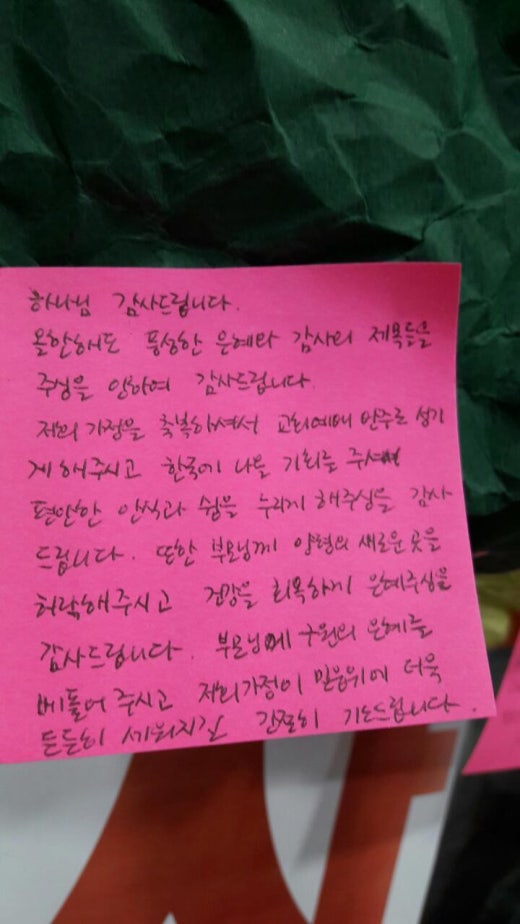 하나님 감사드립니다.
올한해도 풍성한 은혜와 감사의 제목들을
주심을 인하여 감사드립니다.
저희 가정을 축복하셔서 교회예배 반주로 섬기
게 해주시고 한국에 나올 기회를 주셔서
편안한 안식과 쉼을 누리게 해주심을 감사
드립니다. 또한 부모님께 양평의 새로운 곳을
허락해주시고 건강을 회복하게 은혜주심을
감사드립니다. 부모님에게 구원의 은혜를
베풀어 주시고 저희가정이 믿음위에 더욱
든든히 세워지길 간절히 기도드립니다.